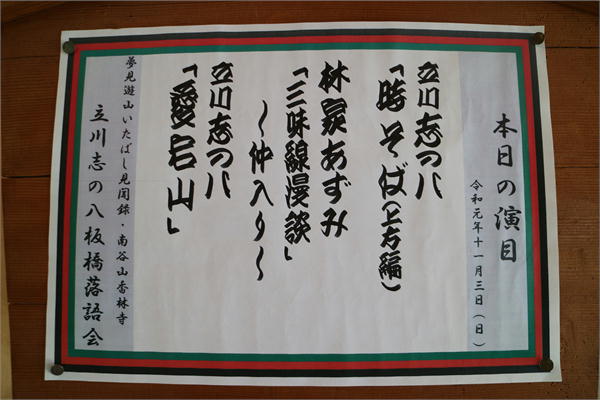 本日の演目
令和元年十一月三日(日)
立川志の八
「時そば(上方編)
林家あずみ
「三味線漫談」
〜仲入り〜
立川志の八
「愛宕山」
夢見遊山いたばし見聞録・南谷山香林寺
立川志の八板橋落語会